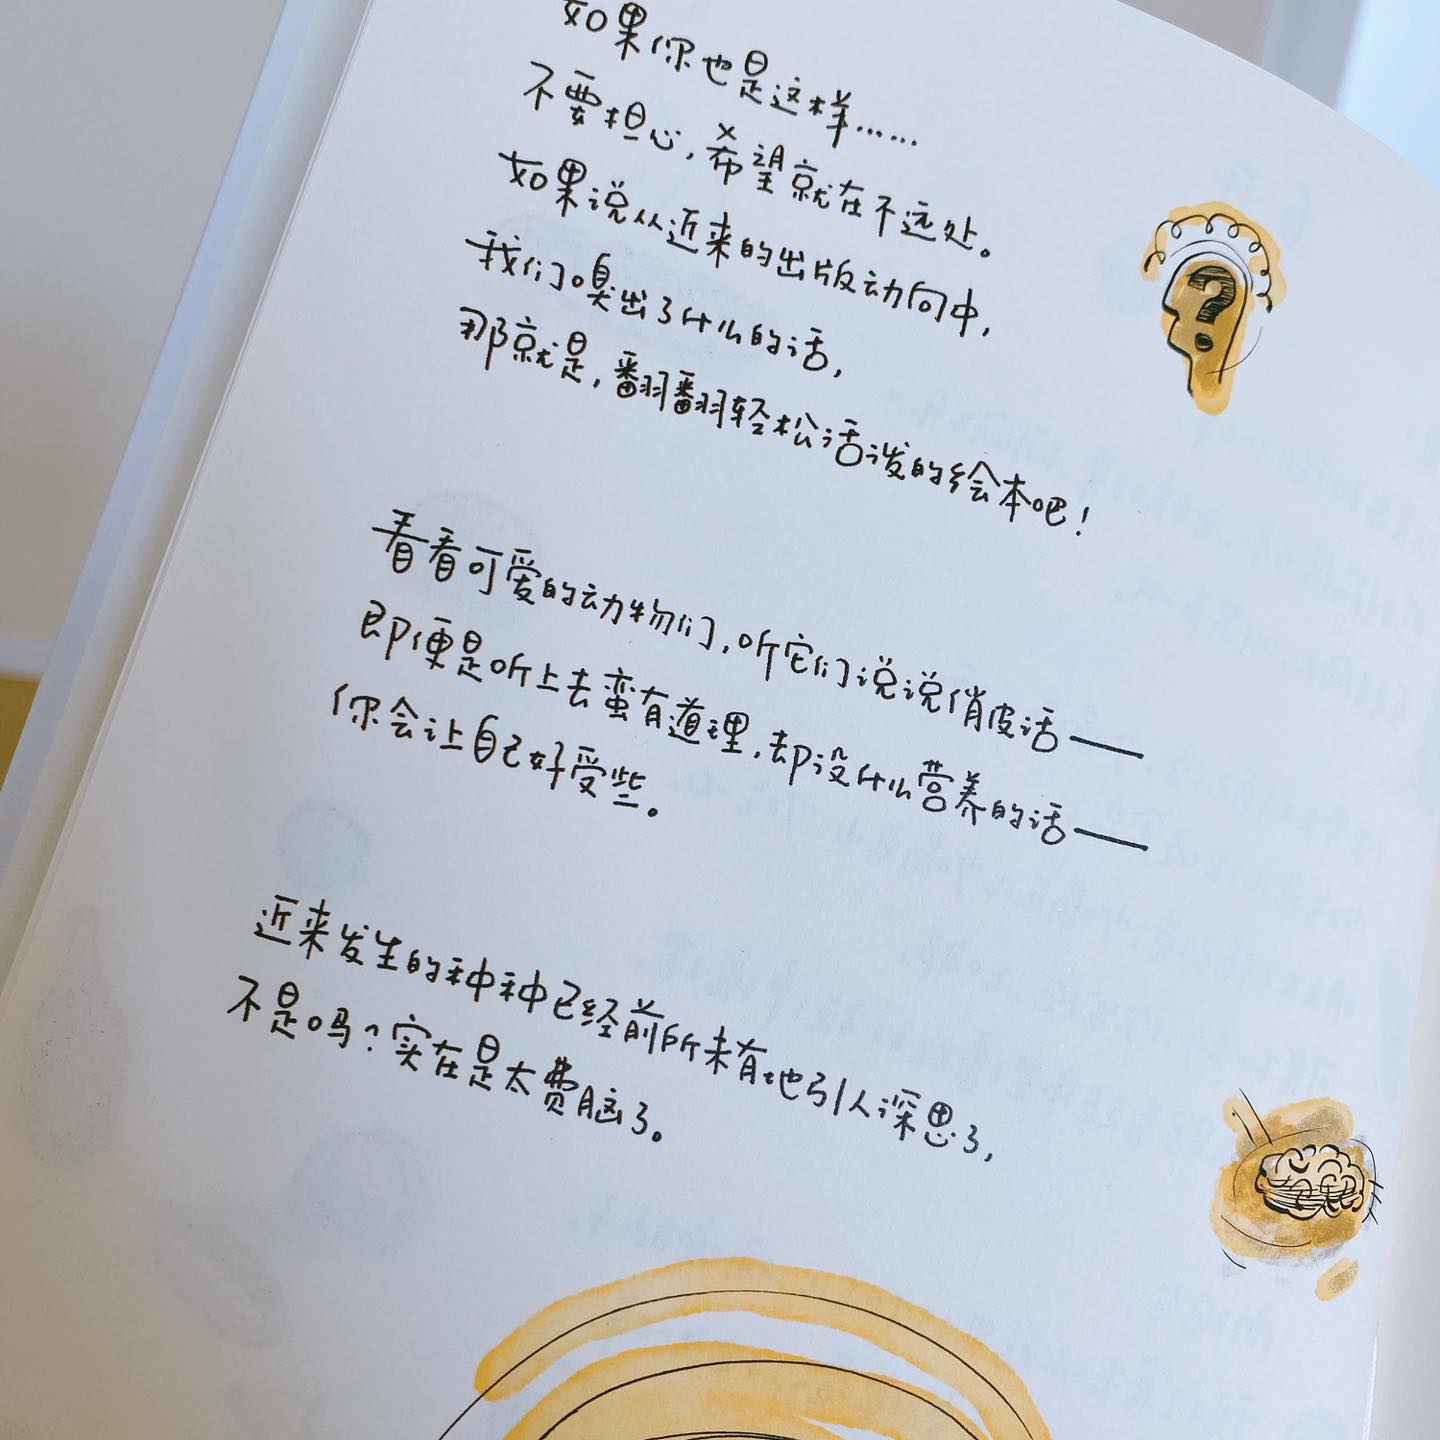 如果你也是这样……
不要担心，希望就在不远处。
如果说从近来的出版动向中，
我们嗅出了什么的话，
那就是，翻翻轻松活泼的绘本吧！
看看可爱的动物们，听它们说说俏皮话——
即便是听上去蛮有道理，却没什么营养的话——
你会让自己好受些。
近来发生的种种已经前所未有地引人深思了，
不是吗？实在是太费脑了。
?